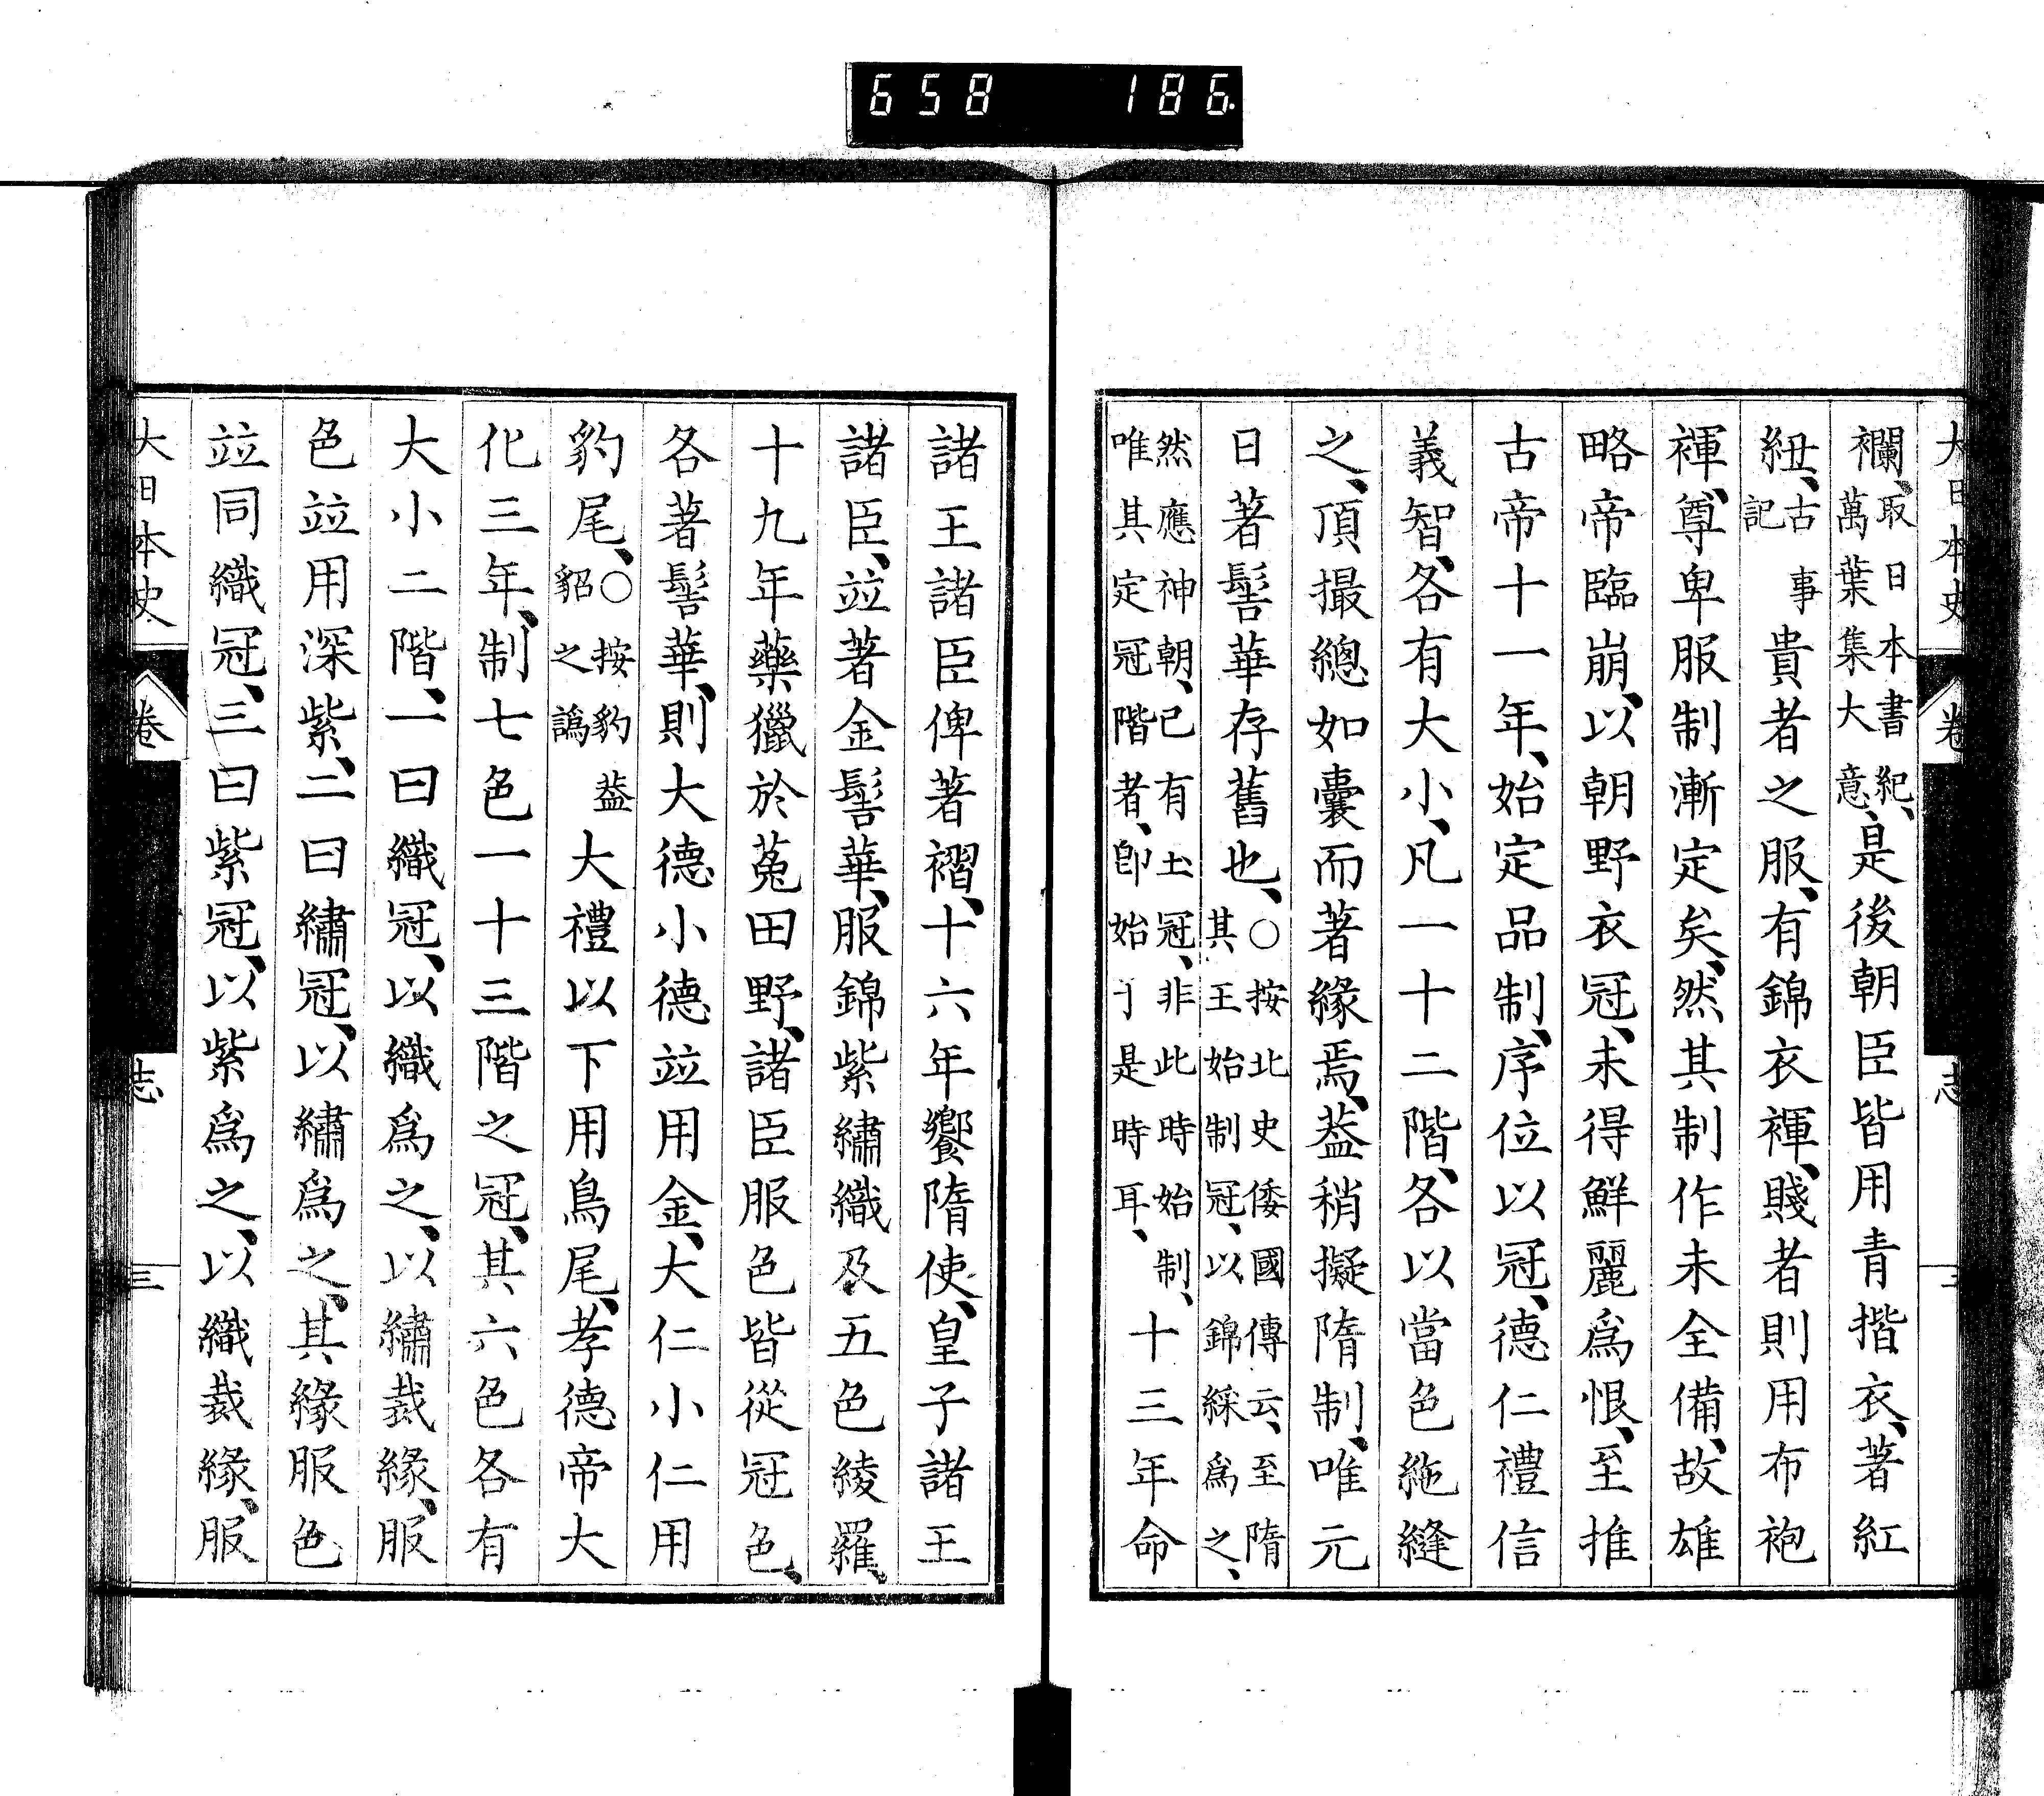 658 186
大日本史 卷 志
襴、取日本書紀、萬葉集大意、是後朝臣皆用青揩衣、著紅
紐、古事記貴者之服、有錦衣褌、賤者則用布袍
褌、尊卑服制漸定矣、然其制作未全備、故雄
略帝臨崩、以朝野衣冠、未得鮮麗爲恨、至推
古帝十一年、始定品制、序位以冠、德仁禮信
義智、各有大小、凡一十二階、各以當色絁縫
之、頂撮總如囊而著緣焉、葢稍擬隋制、唯元
日著髻華存舊也、○按北史倭國傳云、至隋其王始制冠、以錦綵爲之、
然應神朝、已有圡冠、非此時始制、唯其定冠階者、卽始于是時耳、十三年命
諸王諸臣俾著褶、十六年饗隋使、皇子諸王
諸臣、竝著金髻華、服錦紫繡織及五色綾羅、
十九年藥獵於菟田野、諸臣服色皆從冠色、
各著髻華、則大德小德竝用金、大仁小仁用
豹尾、○按豹葢貂之譌大禮以下用鳥尾、孝德帝大
化三年、制七色一十三階之冠、其六色各有
大小二階、一曰織冠、以織爲之、以繡裁緣、服
色竝用深紫、二曰繡冠、以繡爲之、其緣服色
竝同織冠、三曰紫冠、以紫爲之、以織裁緣、服
大日本史 卷 志 三